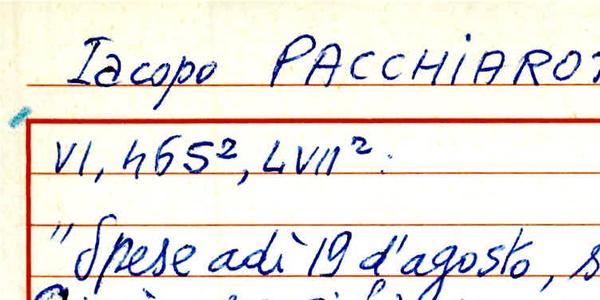 Iacopo PACCHIARO
VI, 465², LVII²:
"Spese adì 19 d'agosto, s